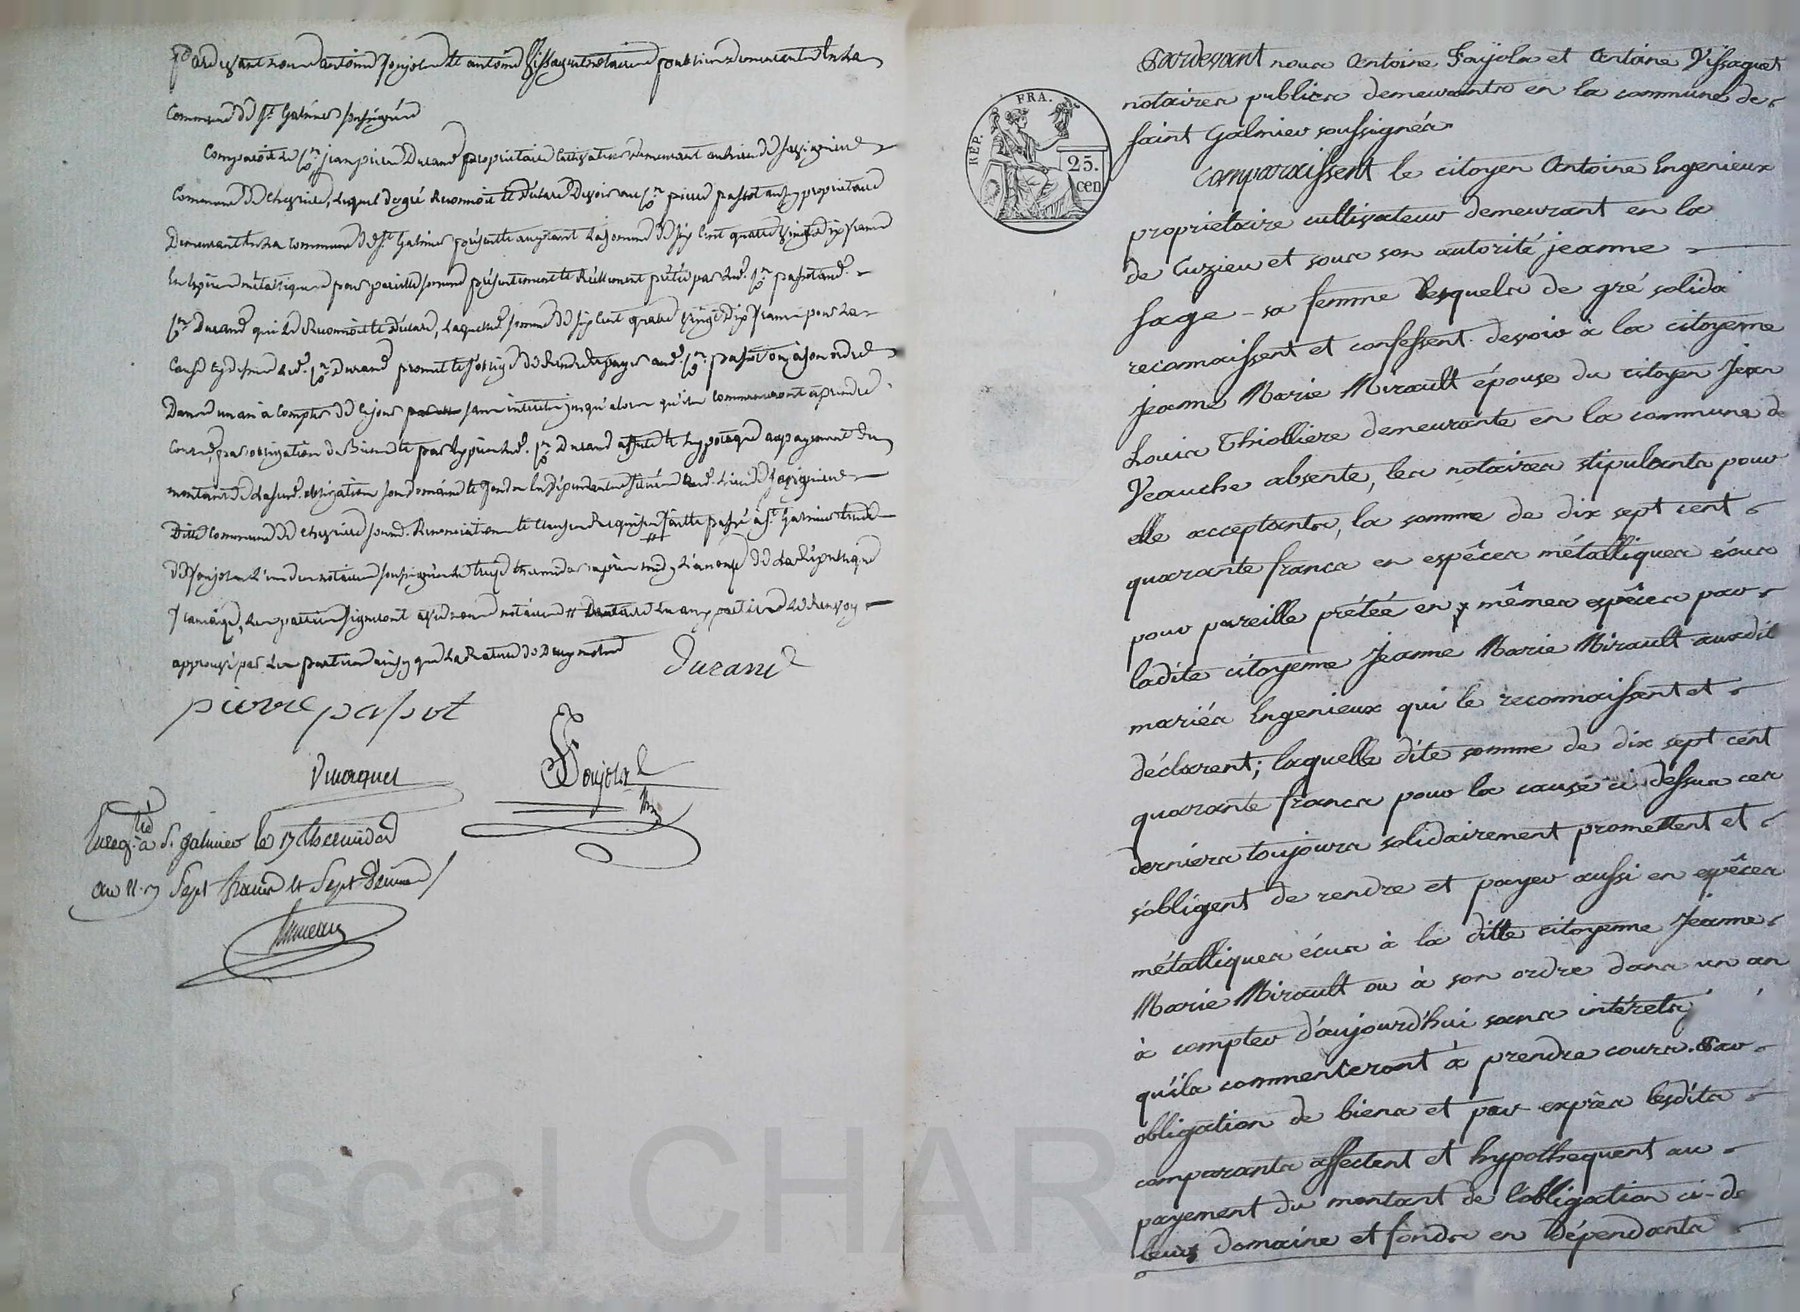 Pardevant nous antoine foujols et antoine Vissaguet notaires publics demeurants en la
Commune de St Galmier soussignés
Comparoit le Cen jean pierre Durand proprietaire cultivateur demeurant au lieu de
Commune de Chevrieres, lequel de gré Reconnoit et déclare Devoir au Cen pierre passot proprietaire
Demeurant en la commune de St Galmier présent et acceptant la somme de six cent quatre vingt dix francs
En espèces métalliques pour pareille somme présentement et Réellement prêtée par led. Cen passot aud.
Cen Durand qui le Reconnoit et Déclare, laquelle somme de six cent quatre vingt Dix francs pour la
Cause cy dessus led. Cen Durand promet et s'oblige de Rendre et payer aud. Cen passot ou à son ordre
Dans un an à compter de ce jour sans interets jusqu'alors qu'ils commenceront à prendre
Cours, par obligation de Biens et par exprès led. Cen Durand affecte et hypoteque au payement du
montant de la susd. obligation son domaine et fonds en dépendants situés aud. lieu de
Ditte Commune de Chevrieres sound. Renonciation et clauses Requises fait et passé à St Galmier étude
de foujols l'un des notaires soussignés le treize thermidor après midy l'an onze de la République
française, les parties signeront avec nous notaires
approuvé par les parties ainsy que la Rature de Deux mots
Durand
pierre passot
Vissaguet
Foujols
Enreg. à St Galmier le 17 thermidor
an 11. Reçu Sept francs et Sept Decimes
REP. FRA.
25.
cen
Pardevant nous Antoine Foujols et Antoine Vissaguet
notaires publics demeurants en la commune de
saint Galmier soussignés
Comparaissent le citoyen Antoine Ingenieux
propriétaire cultivateur demeurant en la
de Cuzieu et sous son autorité jeanne
sage sa femme lesquels de gré solida
reconnaissent et confessent devoir à la citoyenne
jeanne Marie Mirault épouse du citoyen Jean
Louis Thiolliere demeurante en la commune de
Veauche absente, les notaires stipulants pour
elle acceptants, la somme de dix sept cent
quarante francs en espêces métalliques écus
pour pareille prétée en mêmes espêces par
ladite citoyenne Jeanne Marie Mirault auxdit
mariés Ingenieux qui le reconnaissent et
déclarent; laquelle dite somme de dix sept cent
quarante francs pour la cause ci dessus ces
derniers toujours solidairement promettent et
s'obligent de rendre et payer aussi en espêces
métalliques écus à la ditte citoyenne Jeanne
Marie Mirault ou à son ordre dans un an
à compter d'aujourd'hui sans intérets
qu'ils commenceront à prendre cours. Par
obligation de biens et par exprês lesdits
comparants affectent et hypothequent au
payement du montant de l'obligation ci-de
leurs domaine et fonds en dépendants
Pascal CHAR